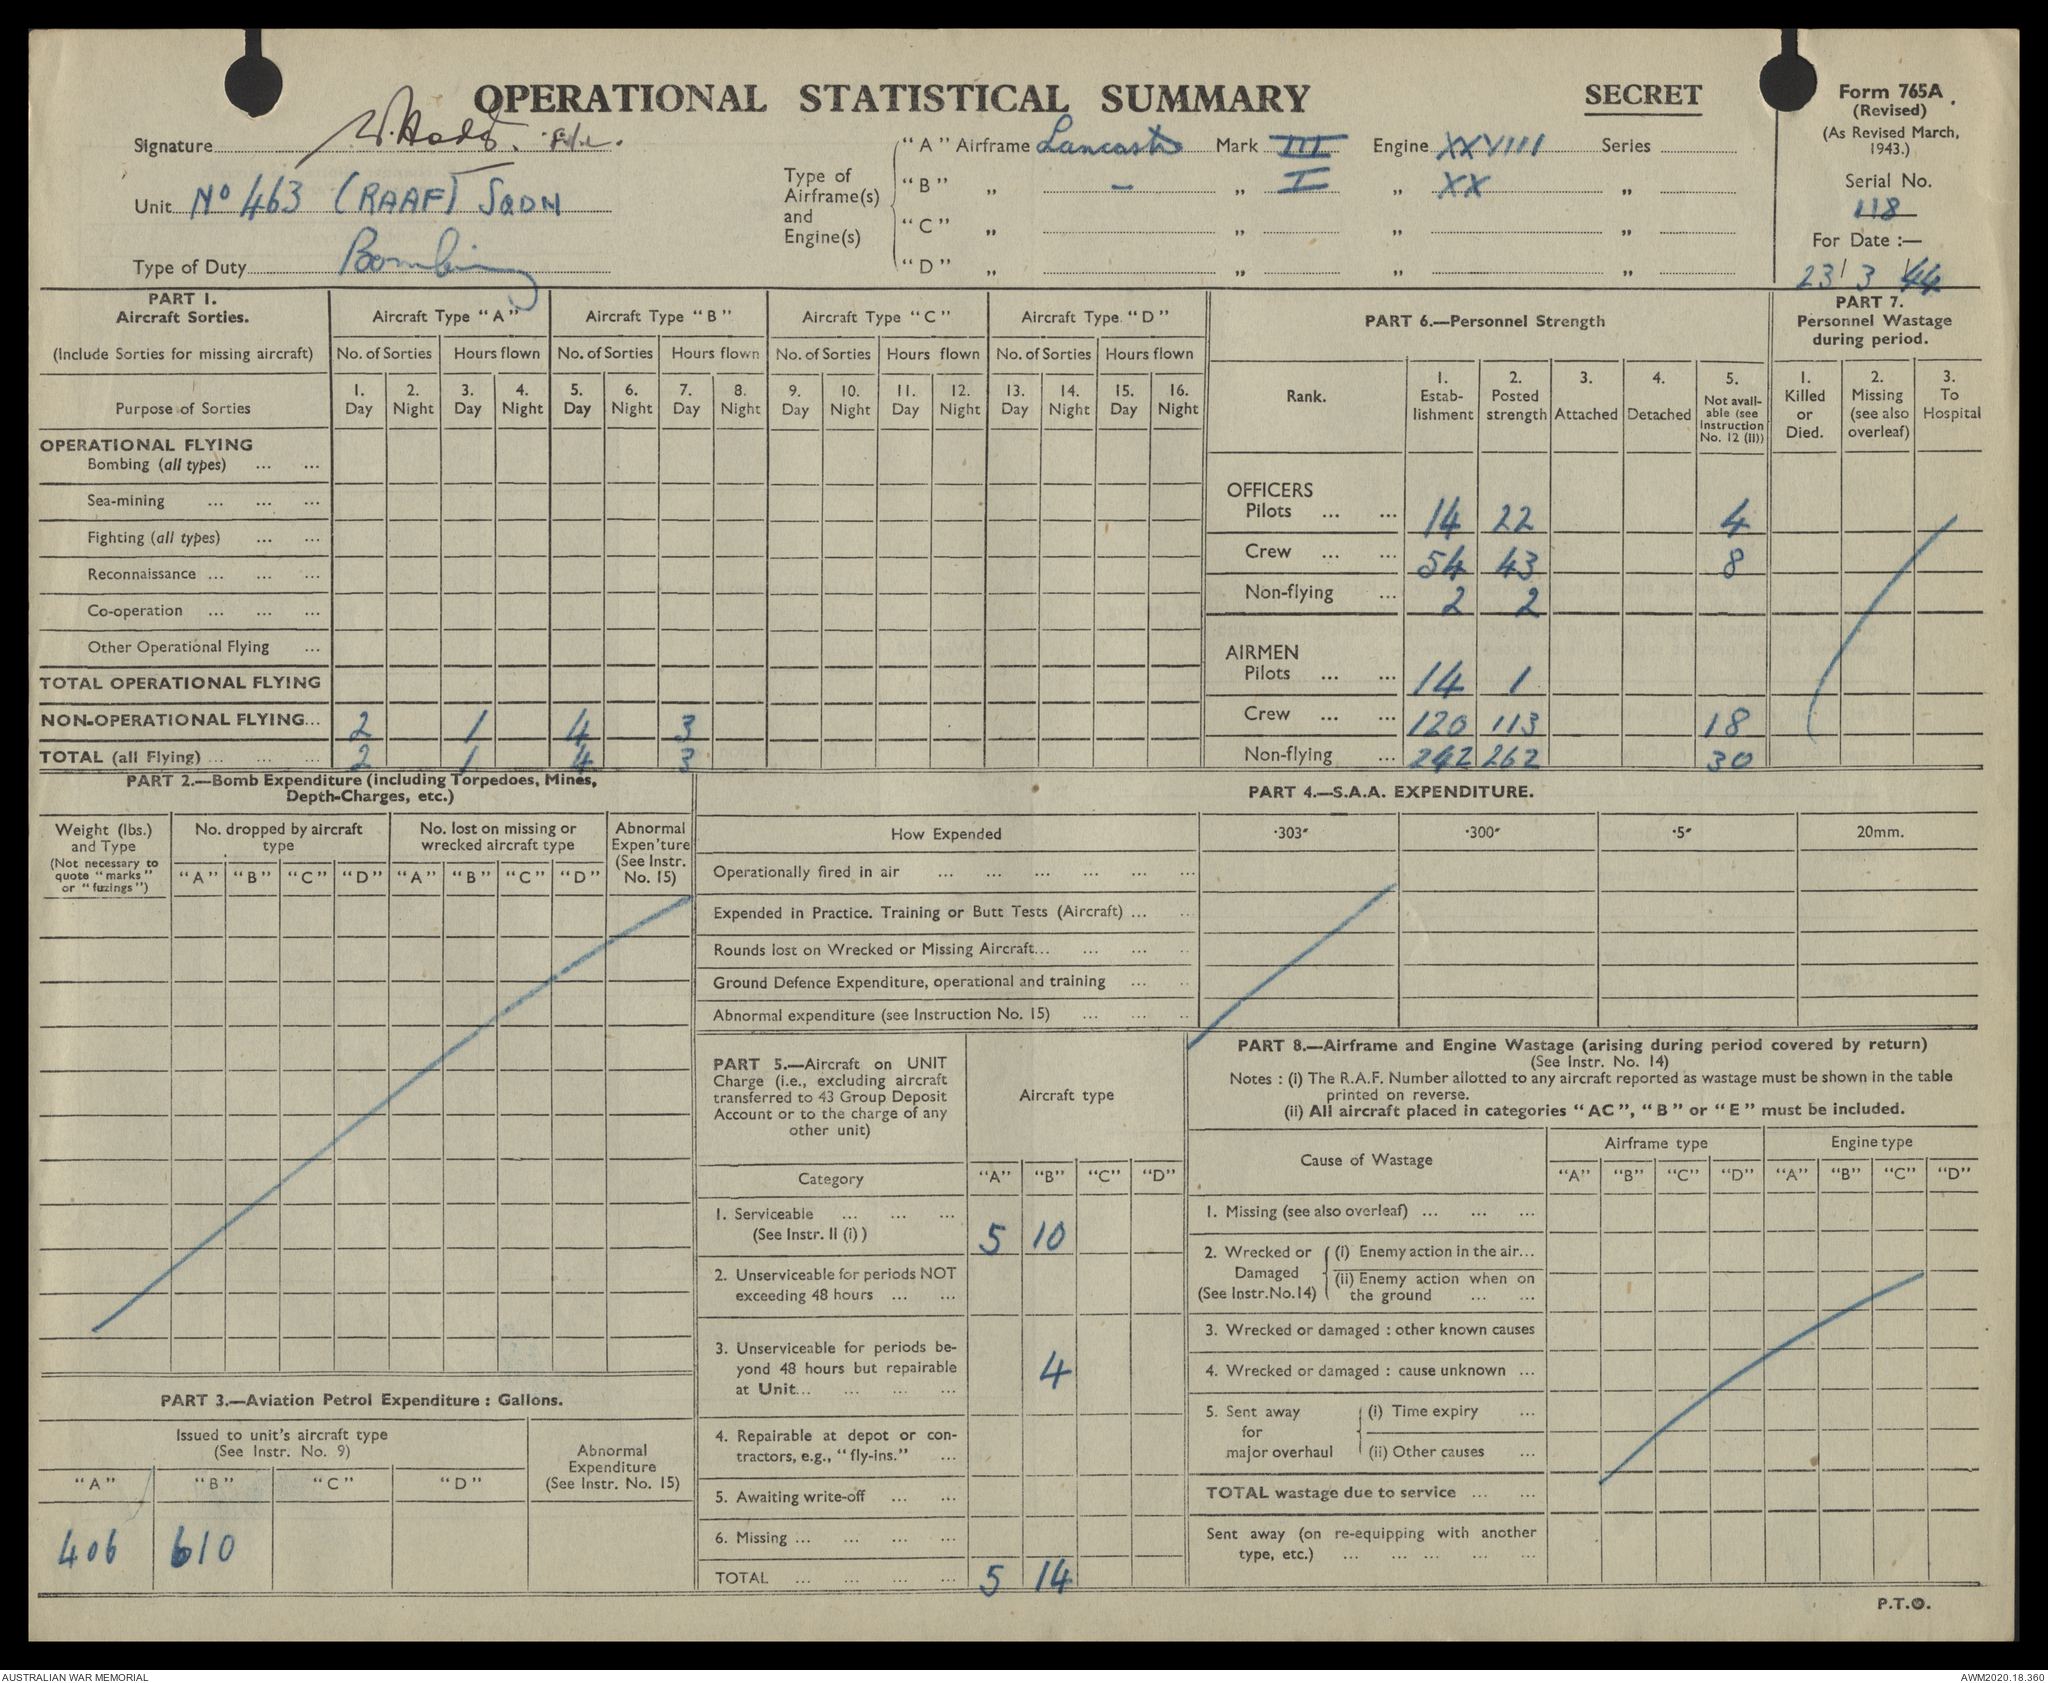 OPERATIONAL STATISTICAL SUMMARY
SECRET
Form 765A
(Revised)
(As Revised March,
1943.)
Serial No.
118
For Date :—
23/3/44
Signature
Unit No 463 (RAAF) SQDN
Type of Duty Bombing
Type of
Airframe(s)
and
Engine(s)
"A" Airframe Lancaster Mark III Engine XXVIII Series
"B" „ — „ I „ XX „
"C" „ „ „ „
"D" „ „ „ „
PART 1.
Aircraft Sorties.
(Include Sorties for missing aircraft)
Purpose of Sorties
Aircraft Type "A" Aircraft Type "B" Aircraft Type "C" Aircraft Type "D"
No. of Sorties Hours flown No. of Sorties Hours flown No. of Sorties Hours flown No. of Sorties Hours flown
1. 2. 3. 4. 5. 6. 7. 8. 9. 10. 11. 12. 13. 14. 15. 16.
Day Night Day Night Day Night Day Night Day Night Day Night Day Night Day Night
OPERATIONAL FLYING
Bombing (all types) ... ...
Sea-mining ... ... ...
Fighting (all types) ... ...
Reconnaissance ... ... ...
Co-operation ... ... ...
Other Operational Flying ...
TOTAL OPERATIONAL FLYING
NON-OPERATIONAL FLYING... 2 1 4 3
TOTAL (all Flying) ... ... ... 2 1 4 3
PART 6.—Personnel Strength
Rank.
1. Estab-lishment
2. Posted strength
3. Attached
4. Detached
5. Not avail-able (see Instruction No. 12 (II))
OFFICERS
Pilots ... ... 14 22 4
Crew ... ... 54 43 8
Non-flying ... 2 2
AIRMEN
Pilots ... ... 14 1
Crew ... ... 120 113 18
Non-flying ... 242 262 30
PART 7.
Personnel Wastage
during period.
1. Killed or Died.
2. Missing (see also overleaf)
3. To Hospital
PART 2.—Bomb Expenditure (including Torpedoes, Mines,
Depth-Charges, etc.)
Weight (lbs.)
and Type
(Not necessary to
quote "marks"
or "fuzings")
No. dropped by aircraft
type
No. lost on missing or
wrecked aircraft type
Abnormal
Expen'ture
(See Instr.
No. 15)
"A" "B" "C" "D" "A" "B" "C" "D"
PART 4.—S.A.A. EXPENDITURE.
How Expended ·303" ·300" ·5" 20mm.
Operationally fired in air ... ... ... ... ... ...
Expended in Practice. Training or Butt Tests (Aircraft) ... ..
Rounds lost on Wrecked or Missing Aircraft... ... ... ..
Ground Defence Expenditure, operational and training ... ..
Abnormal expenditure (see Instruction No. 15) ... ... ..
PART 3.—Aviation Petrol Expenditure : Gallons.
Issued to unit's aircraft type
(See Instr. No. 9)
Abnormal
Expenditure
(See Instr. No. 15)
"A" "B" "C" "D"
406 610
PART 5.—Aircraft on UNIT
Charge (i.e., excluding aircraft
transferred to 43 Group Deposit
Account or to the charge of any
other unit)
Aircraft type
Category "A" "B" "C" "D"
1. Serviceable ... ... ...
(See Instr. II (i) ) 5 10
2. Unserviceable for periods NOT
exceeding 48 hours ... ...
3. Unserviceable for periods be-
yond 48 hours but repairable 4
at Unit... ... ... ...
4. Repairable at depot or con-
tractors, e.g., "fly-ins." ...
5. Awaiting write-off ... ...
6. Missing ... ... ... ...
TOTAL ... ... ... ... 5 14
PART 8.—Airframe and Engine Wastage (arising during period covered by return)
(See Instr. No. 14)
Notes : (i) The R.A.F. Number allotted to any aircraft reported as wastage must be shown in the table
printed on reverse.
(ii) All aircraft placed in categories "AC", "B" or "E" must be included.
Cause of Wastage
Airframe type Engine type
"A" "B" "C" "D" "A" "B" "C" "D"
1. Missing (see also overleaf) ... ... ...
2. Wrecked or Damaged (See Instr.No.14)
(i) Enemy action in the air...
(ii) Enemy action when on
the ground ... ...
3. Wrecked or damaged : other known causes
4. Wrecked or damaged : cause unknown ...
5. Sent away for major overhaul
(i) Time expiry ...
(ii) Other causes ...
TOTAL wastage due to service ... ...
Sent away (on re-equipping with another
type, etc.) ... ... ... ... ...
P.T.O.
AUSTRALIAN WAR MEMORIAL
AWM2020.18.360